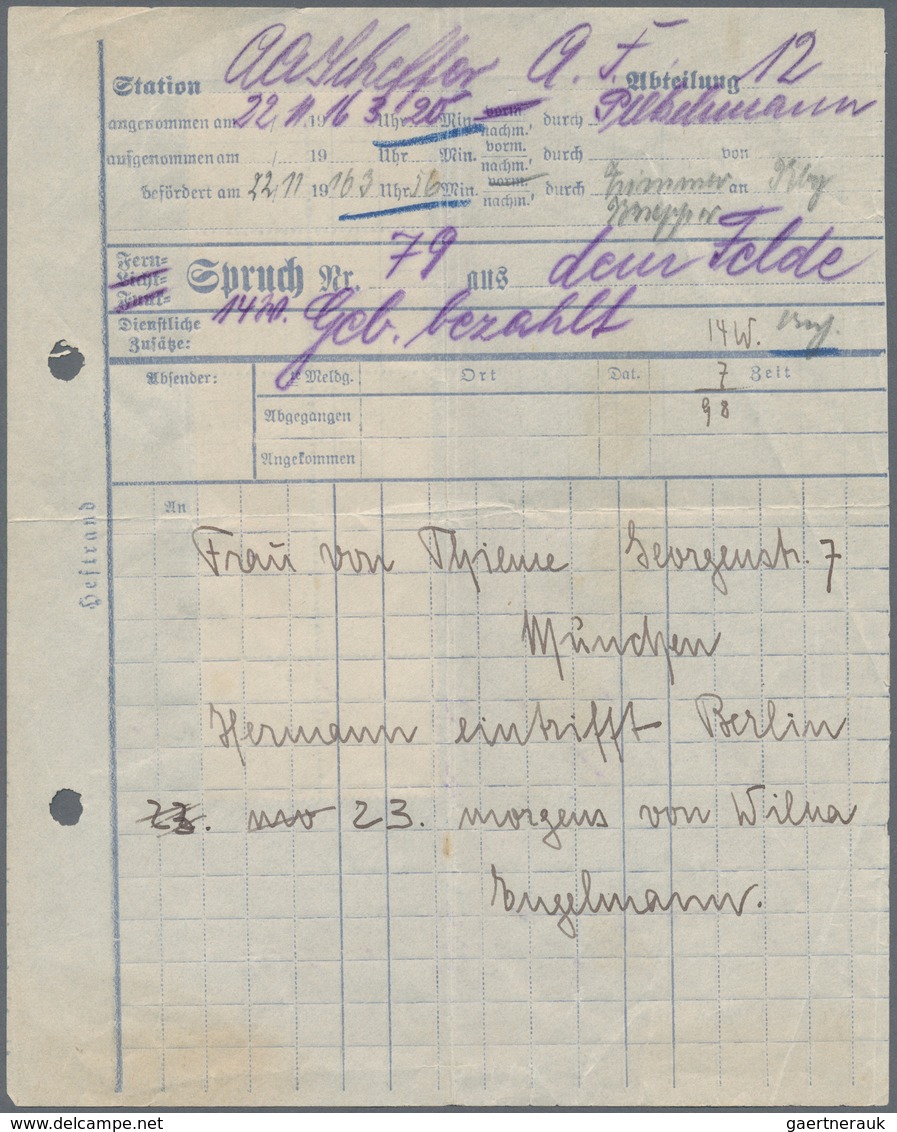 Station AA Scheffer A. F. Abteilung 12
angenommen am 22/11 1916 3 Uhr 25 Min. vorm. nachm. durch
aufgenommen am / 19 Uhr Min. vorm. nachm. durch von
befördert am 22/11 1916 3 Uhr 56 Min. vorm. nachm. durch Zimmer an
Fern-
Licht-
Funk-
Spruch Nr. 79 aus dem Felde
Dienstliche Zusätze: 1430. Geb. bezahlt 14 W.
Absender: Meldg. Ort Dat. 7 Zeit
Abgegangen 98
Angekommen
Heftrand
An
Frau von Thieme Georgenstr. 7
München
Hermann eintrifft Berlin
23. nov 23. morgens von Wilna
Engelmann.
gaertnerauk